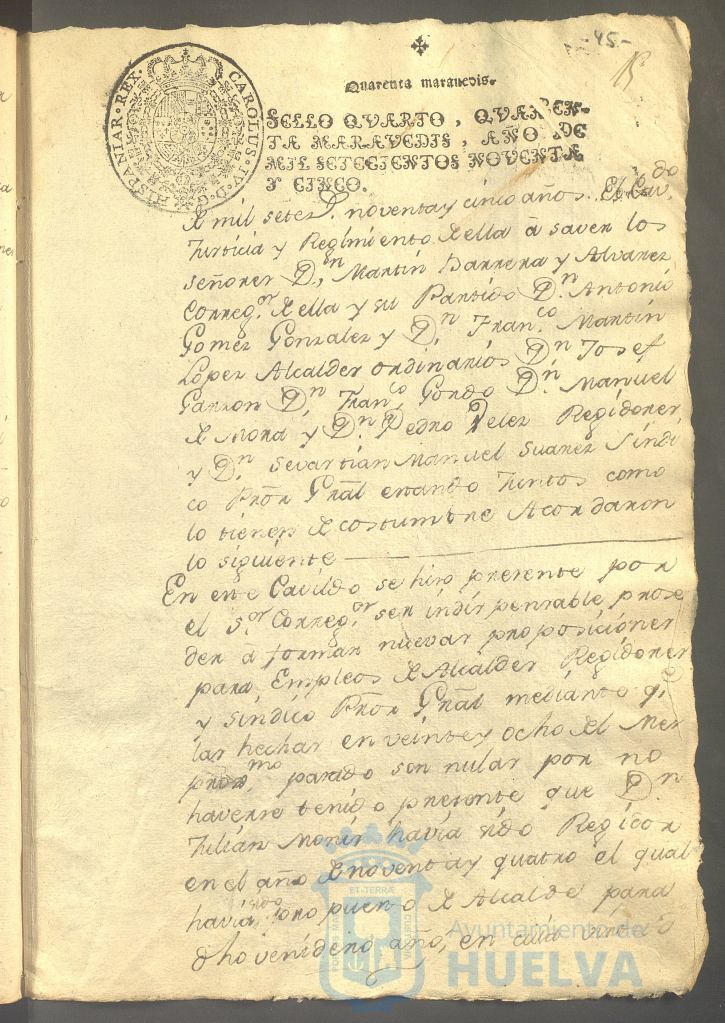 -45-
Quarenta maravedis.
HISPANIAR·REX· CAROLUS·IV·D·G·
SELLO QVARTO, QVAREN-
TA MARAVEDIS, AÑO DE
MIL SETECIENTOS NOVENTA
Y CINCO.
noventa y cinco años. El Cav.do
Justicia y Regimiento de ella â saver los
señores Dn. Martin Barrera y Alvarez
Correg.or de ella y su Partido Dn. Antonio
Gomez Gonzalez y Dn. Franco. Martin
Lopez Alcaldes ordinarios Dn Josef
Garzon Dn. Franco. Gordo Dn. Manuel
de Mora y Dn. Pedro Velez Regidores
y Dn. Sevastian Manuel Suarez Sindi
co Pror Gral estando Juntos como
lo tienen de costumbre Acordaron
lo siguiente
En este Cavildo se hizo presente por
el Sor. Correg.or ser indispensable proze
der a formar nuevas proposiciones
para Empleos de Alcaldes Regidores
y sindico Pror Gral mediante qe
las hechas en veinte y ocho del Mes
proxmo. pasado son nulas por no
haverse tenido presente que Dn
Julian Monis havia sido Regidor
en el año de noventa y quatro el qual
havia sido propuesto de Alcalde para
dho venidero año, en cuia virtud
ET·TERRÆ
Ayuntamiento de
HUELVA